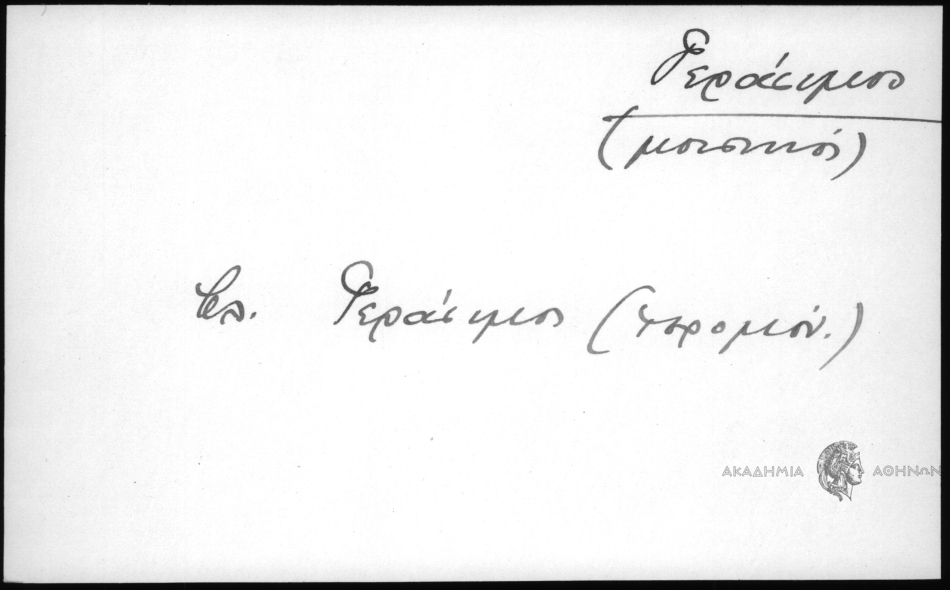 Γεράσιμος
(μουσικός)
βλ. Γεράσιμος (ιερομόν.)
ΑΚΑΔΗΜΙΑ ΑΘΗΝΩΝ